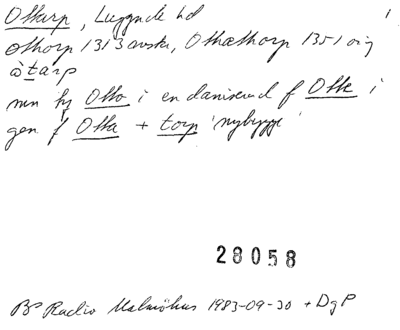 Ottarp, Luggude hd
othorp 1313 avskr, Othæthorp 1351 orig
àtarp
mn fsv Otto i en daniserad f Otte i
gen f Otta + torp 'nybygge'
28058
BP Radio Malmöhus 1983-09-30 + DgP